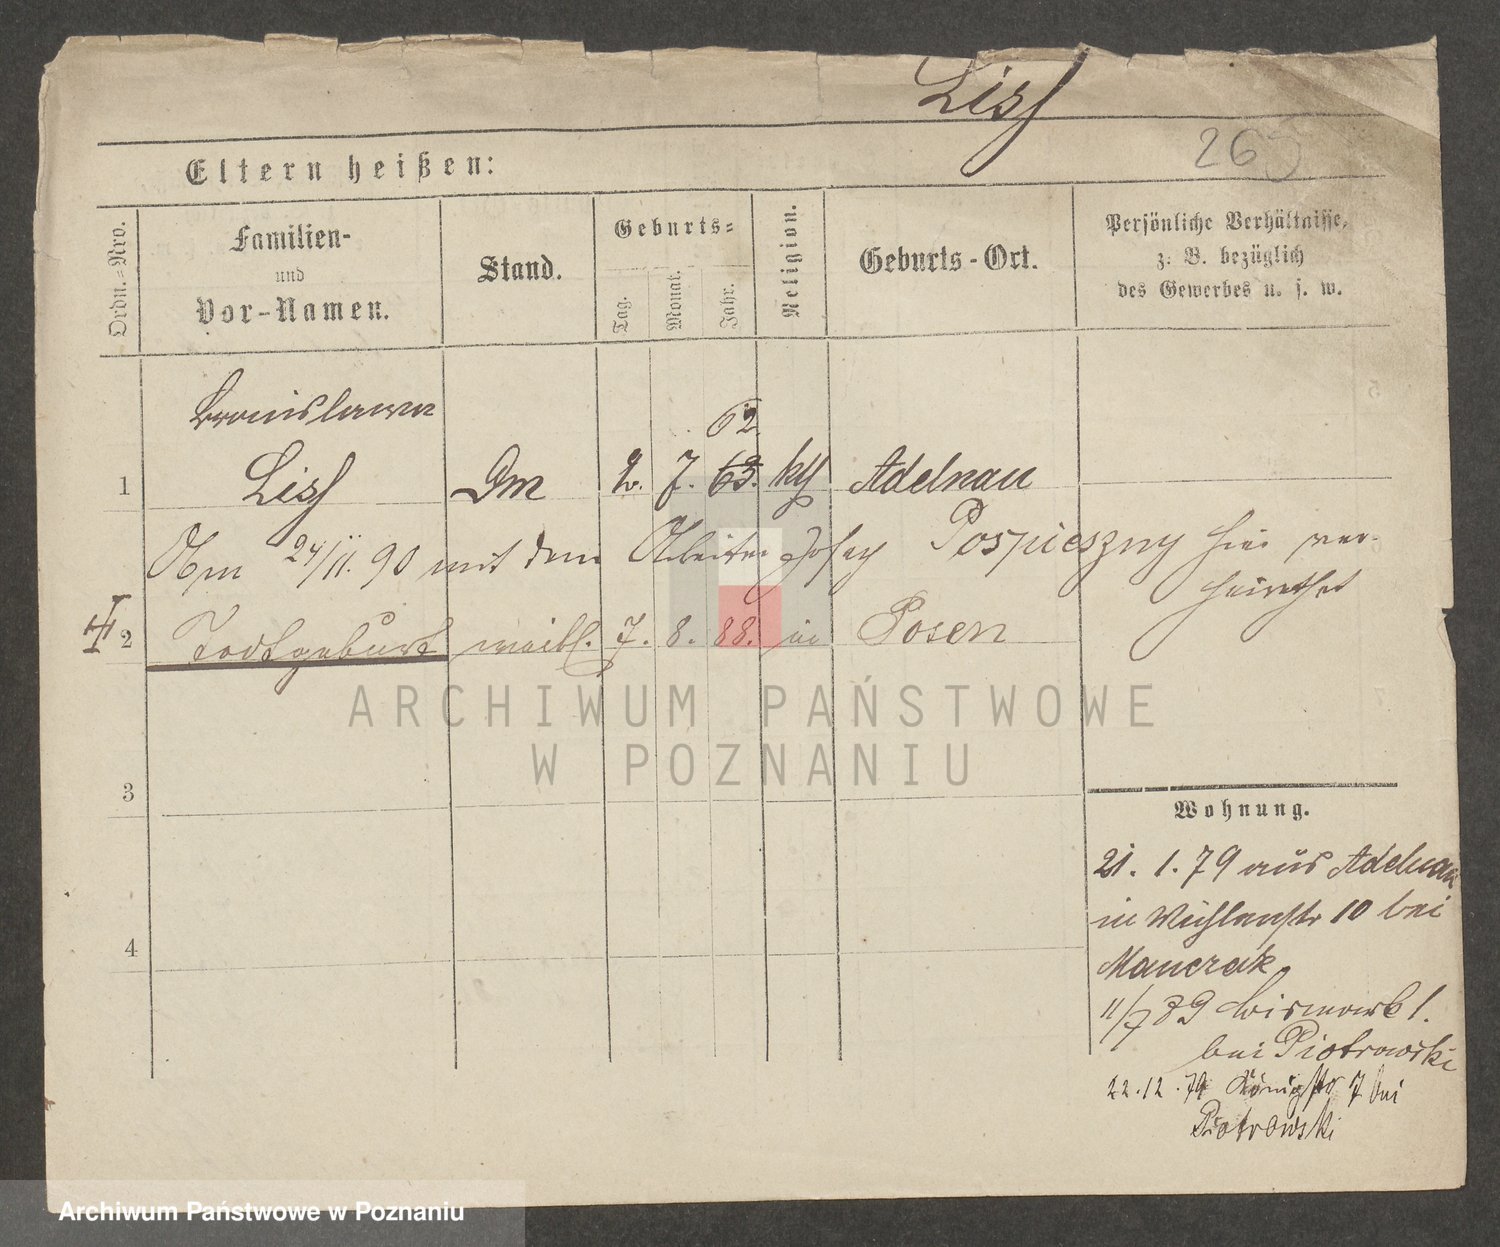 Lisß
265
Eltern heißen:
Ordn.=Nro.
Familien-
und
Vor-Namen.
Stand.
Geburts=
Tag.
Monat.
Jahr.
Religion.
Geburts-Ort.
Persönliche Verhältnisse,
z. B. bezüglich
des Gewerbes u. s. w.
Bronislawa
62.
1 Lisß Dm 2. 7. 63. kth Adelnau
Am 24/11. 90 mit dem Arbeiter Josef Pospieszny hier ver-
heirathet
2 Todtgeburt weibl. 7. 8. 88. in Posen
ARCHIWUM PAŃSTWOWE
W POZNANIU
3
Wohnung.
21. 1. 79 aus Adelnau
in Mühlenstr 10 bei
Manczak.
11/7 89 Bismarck 1.
bei Piotrowski
22.12.79 Königstr 7 bei
Piotrowski
4
Archiwum Państwowe w Poznaniu